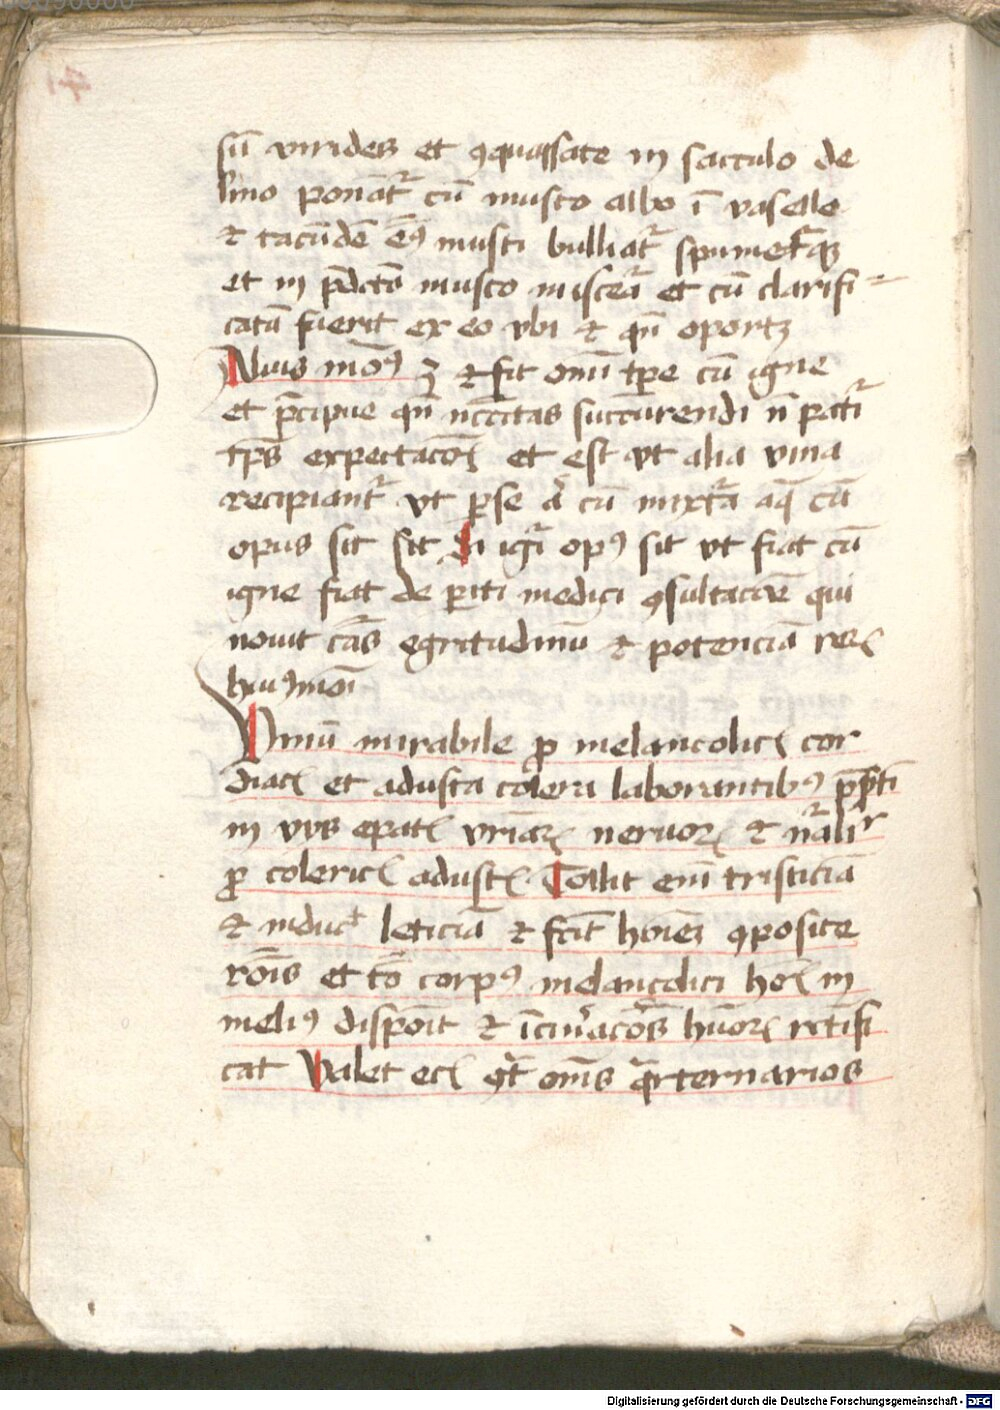 sū virides et ꝯquassate in sacculo de
lino ponāt᷑ cū musto albo ī vasello
et tacūdē eiꝰ musti bulliat᷑
et in p̄dcō musto misceat᷑ et cū clarifi-
catū fuerit ex eo vbi et qn̄ oportꝫ
Aliuis modꝰ ꝫ et fit omī tp̄e cū igne
et p̄cipue qn̄ necc̄itas succurrendi n̄ patit᷑
tp̄is expectacōꝫ et est vt alia vina
recipiant᷑ vt per se cū mixt᷑a aq̄ cū
opus sit Si igr̄ opꝰ sit vt fiat cū
igne fiat de periti medici ꝯsultacōe qui
nouit cās egritudinū et potenciā reꝝ
huiꝰmōi
Vinū mirabile ꝓ melancolicis cor
diacis et adusta colera laborantibꝰ
in vijs epatis vrinaꝝ neruoꝝ et
ꝓ colericis adustis Tollit enī tristiciā
et inducit leticiā et facit hoīes ꝯposite
rōis et tō corpꝰ melancolici hoīs in
meliꝰ dispōit et hūoꝝ rectifi
cat Valet ecī ꝯt̄ omīs qr̄ternarios
Digitalisierung gefördert durch die Deutsche Forschungsgemeinschaft - DFG